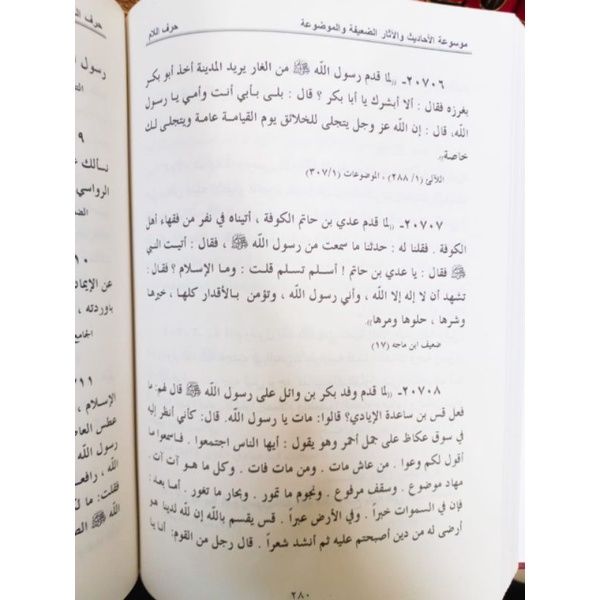 موسوعة الأحاديث والآثار الضعيفة والموضوعة
حرف اللام
٢٠٧٠٦ـ ((لما قدم رسول الله ﷺ من الغار يريد المدينة أخذ أبو بكر
بغرزه فقال : ألا أبشرك يا أبا بكر ؟ قال : بلى بأبي أنت وأمي يا رسول
الله، قال : إن الله عز وجل يتجلى للخلائق يوم القيامة عامة ويتجلى لك
خاصة)).
اللآلئ (١/ ٢٨٨) ، الموضوعات (٣٠٧/١)
٢٠٧٠٧ـ ((لما قدم عدي بن حاتم الكوفة ، أتيناه في نفر من فقهاء أهل
الكوفة . فقلنا له : حدثنا ما سمعت من رسول الله ﷺ ، فقال : أتيت النبي
ﷺ فقال : يا عدي بن حاتم ! أسلم تسلم قلت : وما الإسلام ؟ فقال :
تشهد أن لا إله إلا الله ، وأني رسول الله ، وتؤمن بالأقدار كلها ، خيرها
وشرها ، حلوها ومرها)).
ضعيف ابن ماجه (١٧)
٢٠٧٠٨ـ ((لما قدم وفد بكر بن وائل على رسول الله ﷺ قال لهم: ما
فعل قس بن ساعدة الإيادي؟ قالوا: مات يا رسول الله. قال: كأني أنظر إليه
في سوق عكاظ على جمل أحمر وهو يقول : أيها الناس اجتمعوا . فاسمعوا ما
أقول لكم وعوا . من عاش مات . ومن مات فات . وكل ما هو آت آت .
مهاد موضوع . وسقف مرفوع . ونجوم ما تمور . وبحار ما تغور . أما بعد :
فإن في السموات خبراً . وفي الأرض عبراً . قس يقسم بالله إن لله لدينا هو
أرضى له من دين أصبحتم عليه ثم أنشد شعراً . قال رجل من القوم: أنا يا
٢٨٠
رسول الله
٩
نسألك
الرواسي
١٠
عن الإيما
باوردته ،
الجامع
٧١١
الإسلام ،
عطس العا
رسول الله
الله ، رافعـ
فقلت: ما
الله ﷺ